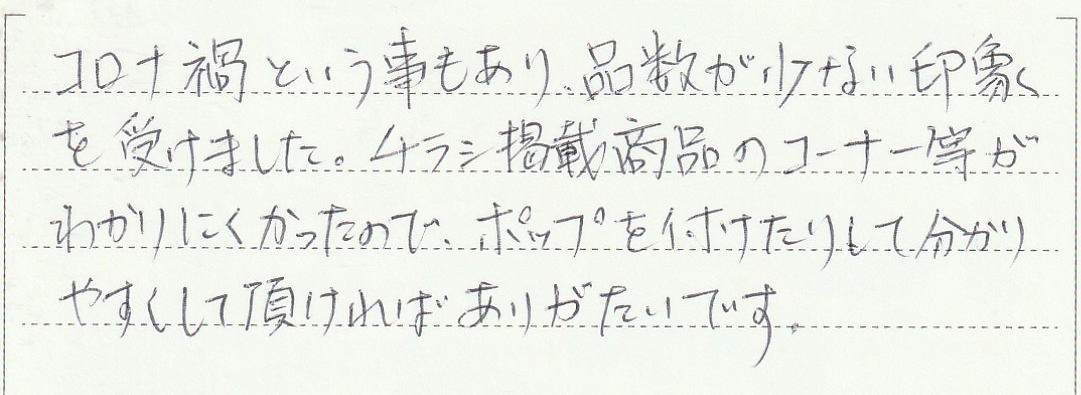 コロナ禍という事もあり、品数が少ない印象
を受けました。チラシ掲載商品のコーナー等が
わかりにくかったので、ポップを付けたりして分かり
やすくして頂ければありがたいです。